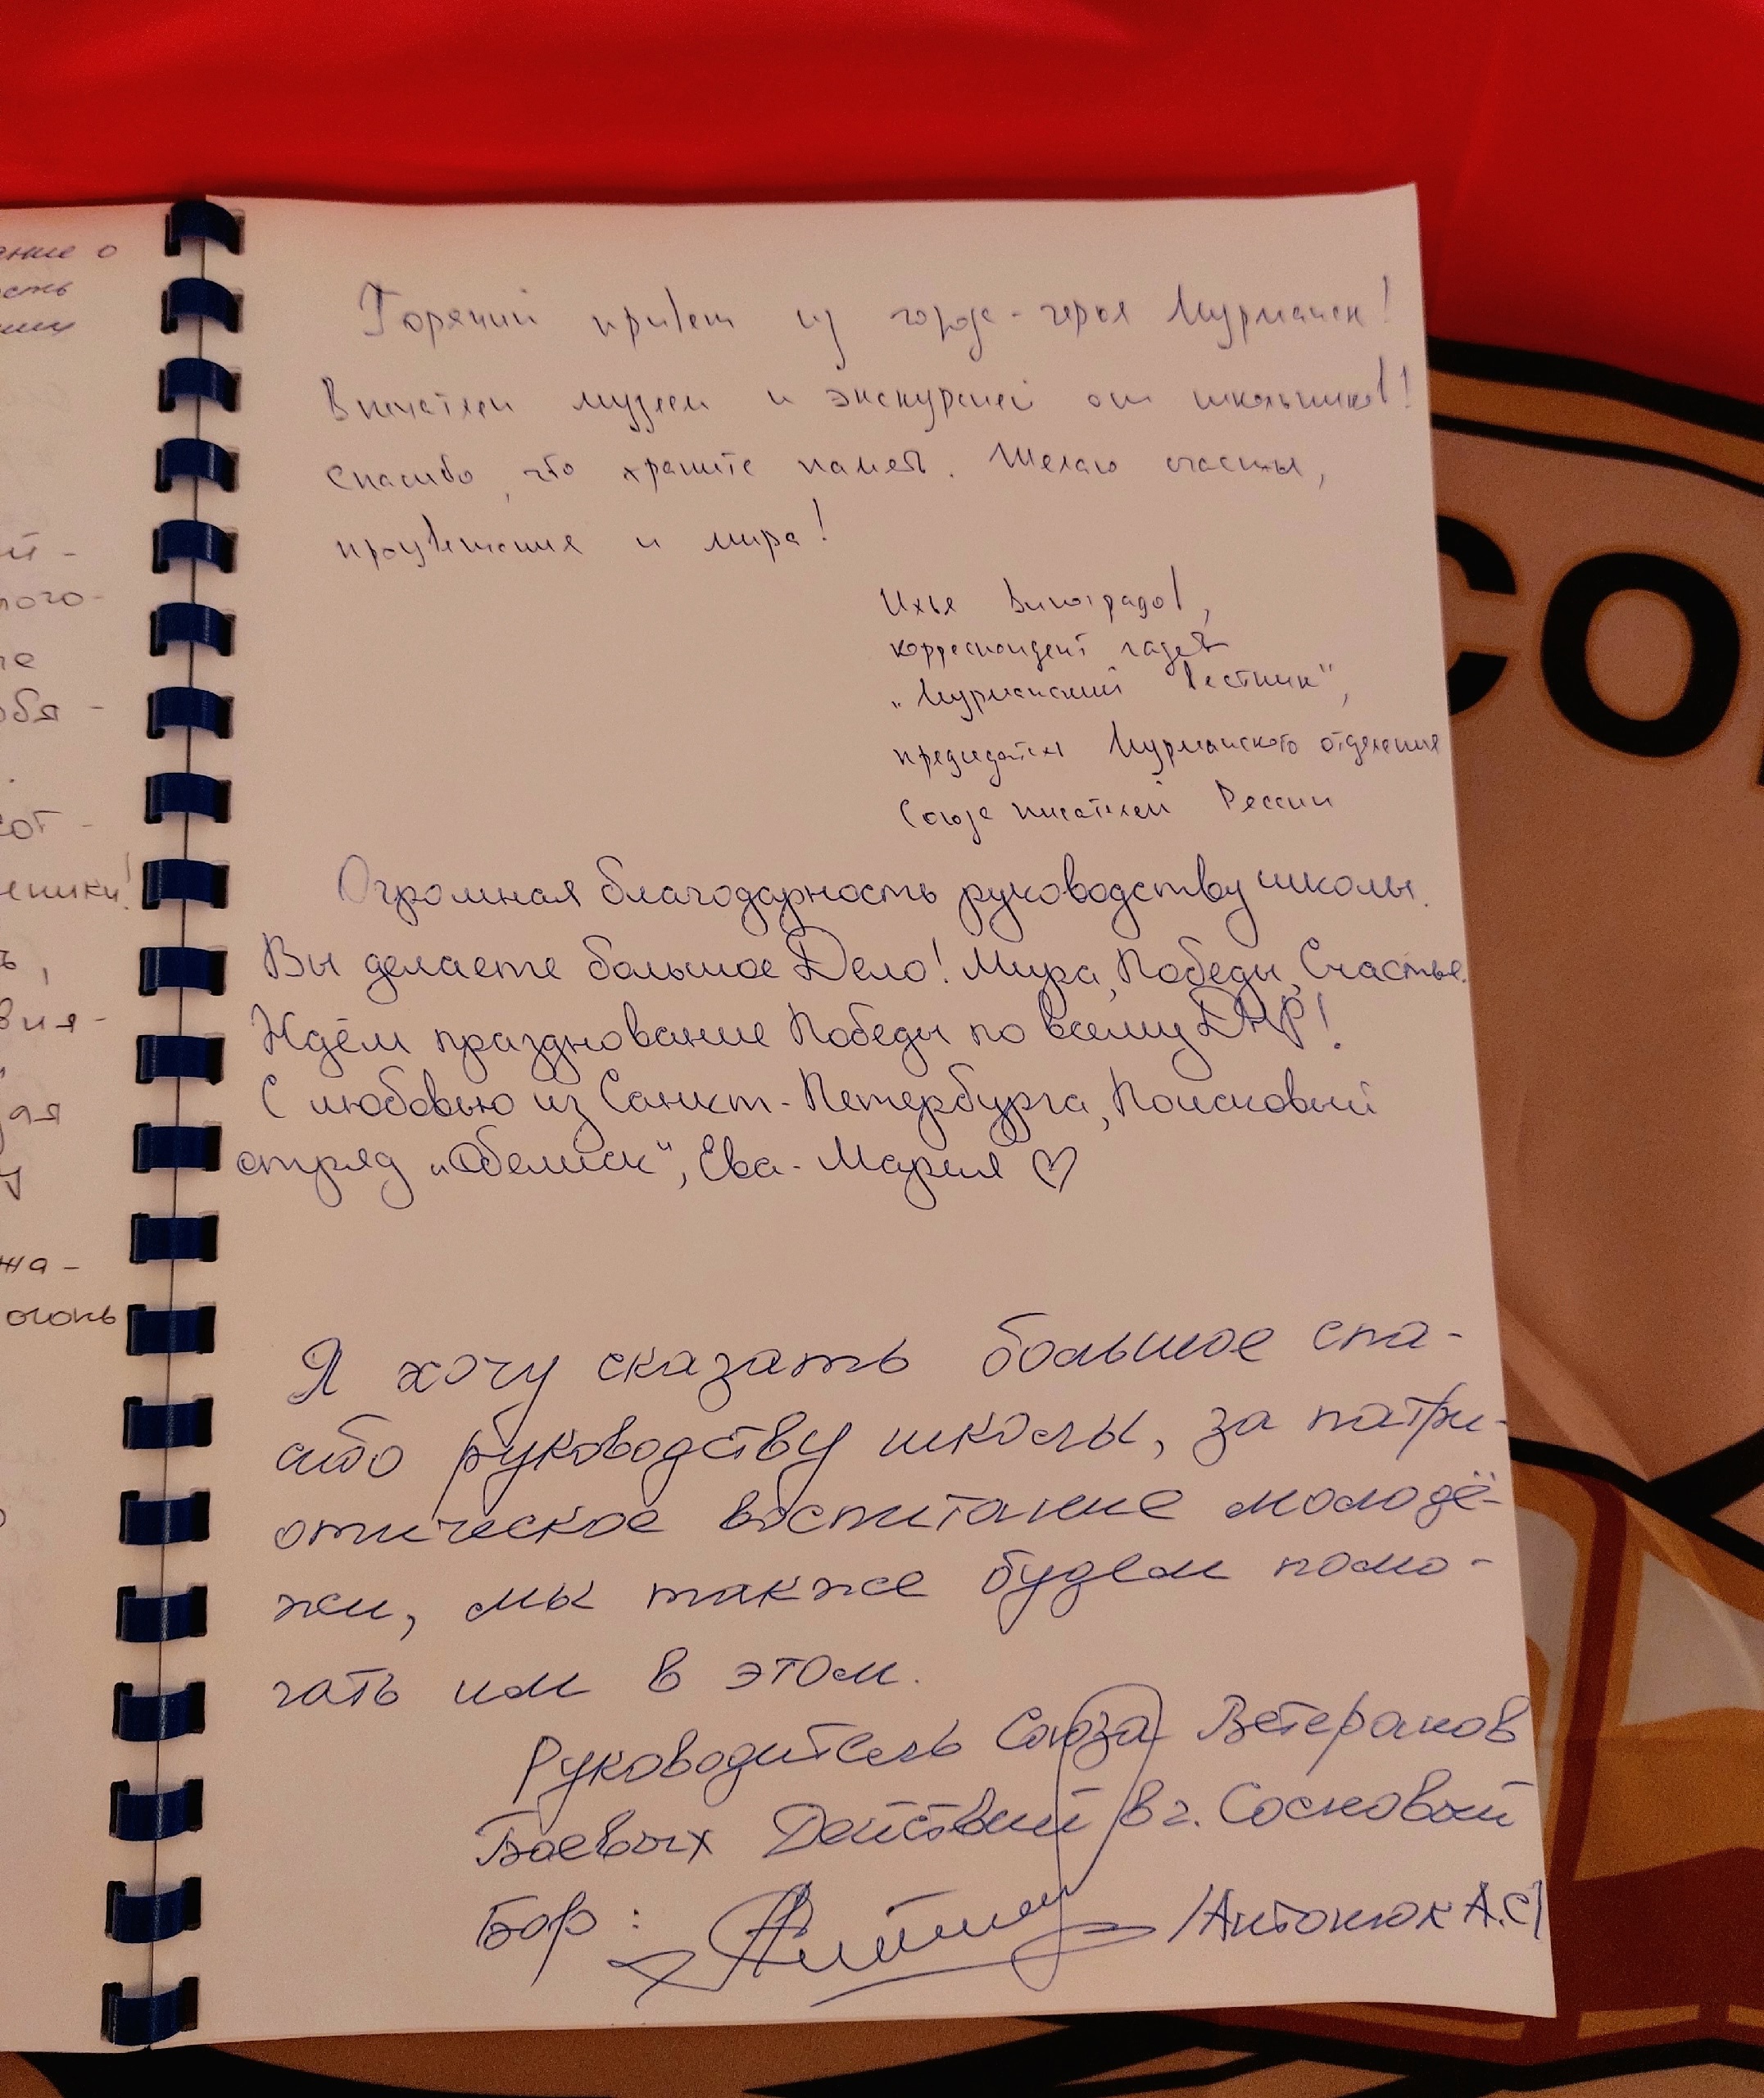 ение о
ость
ших
ый-
ного-
ие
обя-
.
сот-
еники!
ь,
вия-
ая
у
жа-
огонь
Горячий привет из города-героя Мурманск!
Впечатлен музеем и экскурсией от школьников!
Спасибо, что храните память. Желаю счастья,
процветания и мира!
Илья Виноградов,
корреспондент газеты
"Мурманский вестник",
председатель Мурманского отделения
Союза писателей России
Огромная благодарность руководству школы.
Вы делаете большое Дело! Мира, Победы, Счастье.
Ждём празднование Победы по всему ДНР!
С любовью из Санкт-Петербурга, Поисковый
отряд "Обелиск", Ева-Мария ♡
Я хочу сказать большое спа-
сибо руководству школы, за патри-
отическое воспитание молодё-
жи, мы также будем помо-
гать им в этом.
Руководитель Союза Ветеранов
Боевых Действий в г. Сосновый
Бор: /Антонюк А.С/
СО